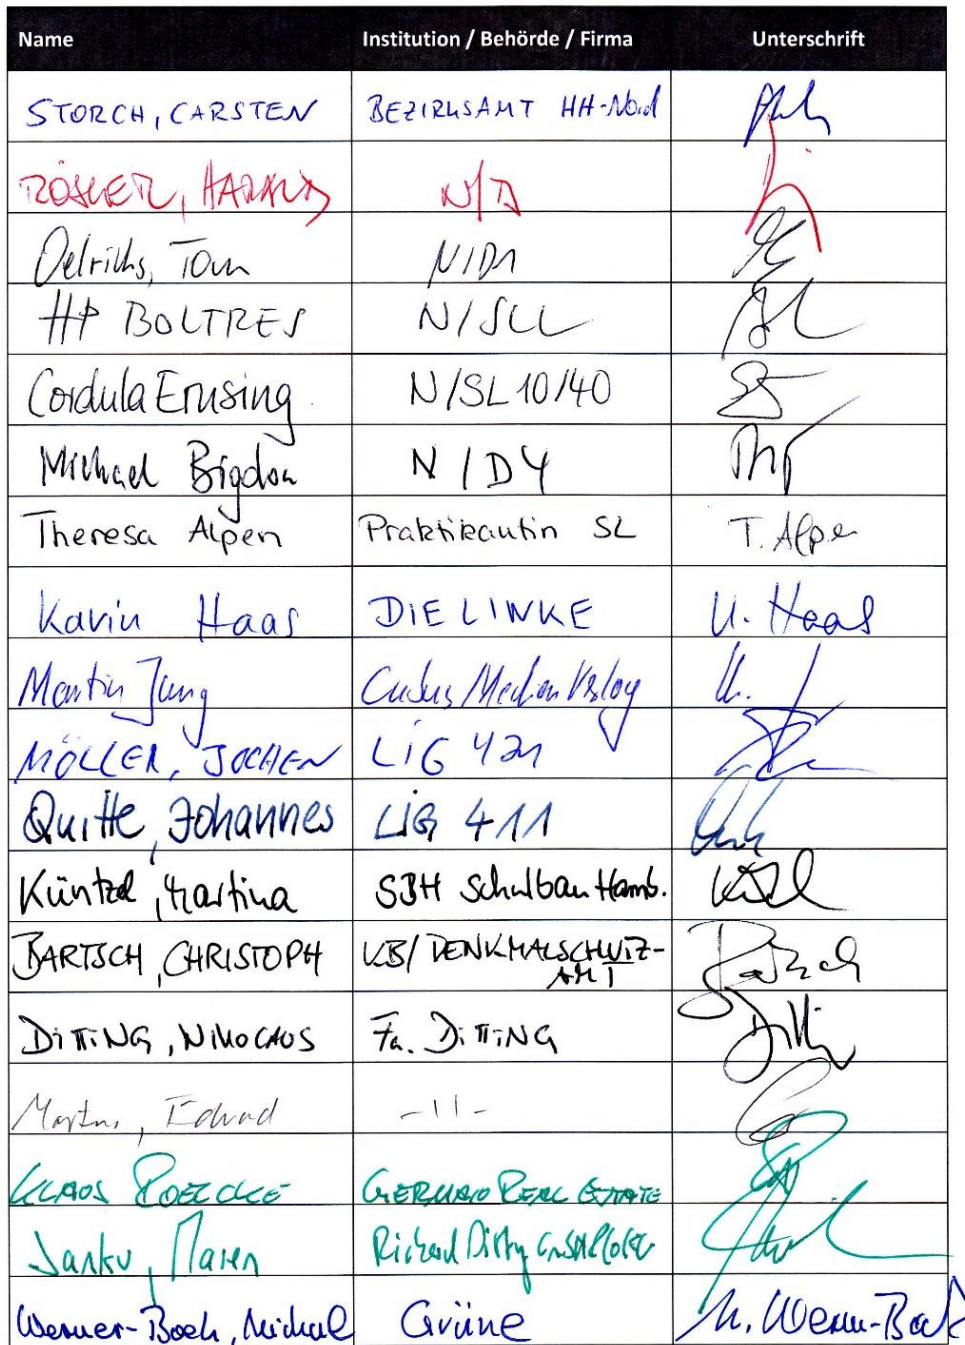 Name Institution / Behörde / Firma Unterschrift
STORCH, CARSTEN BEZIRKSAMT HH-Nord
RÖSLER, HARALD N/D
Oelrichs, Tom N/D1
HP BOLTRES N/SLL
Cordula Ernsing N/SL 10/40
Michael Bigdon N/D4
Theresa Alpen Praktikantin SL T. Alpen
Karin Haas DIE LINKE K. Haas
Martin Jung
MÖLLER, JOCHEN LIG 421
Quitte, Johannes LIG 411
Küntzel, Martina SBH Schulbau Hamb.
BARTSCH, CHRISTOPH KB/DENKMALSCHUTZ-
AMT Bartsch
DITTING, NIKOLAUS Fa. DITTING
Edward -11-
KLAUS
Janku, Maren Richard Ditting
Werner-Boelz, Michael Grüne M. Werner-Boelz